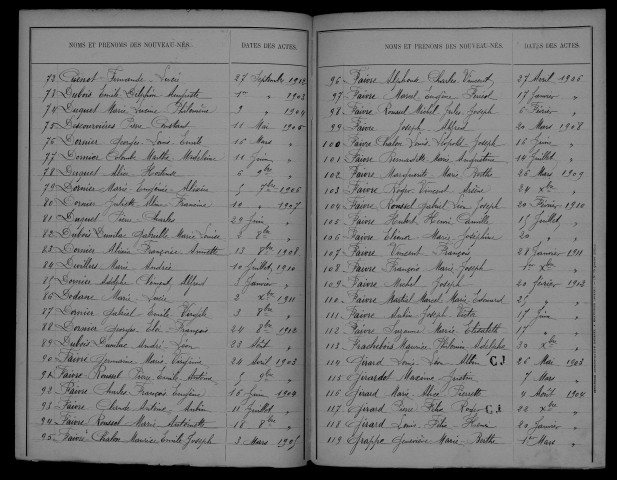 NOMS ET PRÉNOMS DES NOUVEAU-NÉS.
DATES DES ACTES.
72 Cuenot Fernande Lucie 27 Septembre 1902
73 Dubois Emile Delphin Auguste 1er " 1903
74 Duguet Marie Lucine Philomène 9 " 1904
75 Descourvières Pierre Constant 11 Mai 1905
76 Dornier Georges Louis Emile 16 Mars "
77 Dornier Colombe Marthe Madeleine 11 Juin "
78 Duguet Alice Hortense 6 9bre "
79 Dornier Marie Eugénie 5 7bre 1906
80 Dornier Juliette Francine 10 " 1907
81 Dusnet Pierre Charles 29 Juin "
82 Dubois Gabrielle Marie Louise 8 8bre "
83 Dornier Françoise Annette 13 8bre 1908
84 Duvillers Marie 10 Juillet 1910
85 Dornier Adolphe Clément Alfred 3 Janvier "
86 Dodane Marie Lucie 2 Xbre 1911
87 Dornier Gabriel Emile 3 8bre "
88 Dornier Georges François 24 8bre 1912
89 Dubois André Léon 22 Août "
90 Faivre Germaine Marie Eugénie 24 Avril 1903
91 Faivre Roussel Pierre Emile Antoine 5 9bre "
92 Faivre Charles François Eugène 15 Juin 1904
93 Faivre Claude Antoine 11 Juillet "
94 Faivre Roussel Marie Antoinette 18 8bre "
95 Faivre Chalon Maurice Emile Joseph 3 Mars 1905
NOMS ET PRÉNOMS DES NOUVEAU-NÉS.
DATES DES ACTES.
96 Faivre Alphonse Charles Vincent 27 Avril 1906
97 Faivre Marcel Eugène 17 Janvier "
98 Faivre Roussel Michel Jules Joseph 6 Février "
99 Faivre Joseph Alfred 20 Mars 1908
100 Faivre Chalon Louis Léopold Joseph 16 Juin "
101 Faivre Bernadette Marie Augustine 14 Juillet "
102 Faivre Marguerite Marie Berthe 26 Mars 1909
103 Faivre Roger Vincent 24 Xbre "
104 Faivre Roussel Gabriel Léon Joseph 20 Février 1910
105 Faivre Hubert Henri Camille 15 Juillet "
106 Faivre Marie Joséphine 5 Xbre "
107 Faivre Vincent François 28 Janvier 1911
108 Faivre François Marie Joseph 1er Xbre "
109 Faivre Michel Joseph 20 Février 1912
110 Faivre Martial Marcel Marie Edouard 25 "
111 Faivre Joseph Victor 17 Juin "
112 Faivre Suzanne Marie Elisabeth 17 "
113 Frachebois Maurice Adolphe 30 Xbre "
114 Girard Louis Léon CJ 26 Mai 1903
115 Girardet Maxime 7 Mars "
116 Girard Marie Alice Pierrette 4 Août 1904
117 Girard Pierre Félix Roger CJ 22 Xbre "
118 Girard Louis Félix 20 Janvier "
119 Grappe Geneviève Marie Berthe 1er Mars "